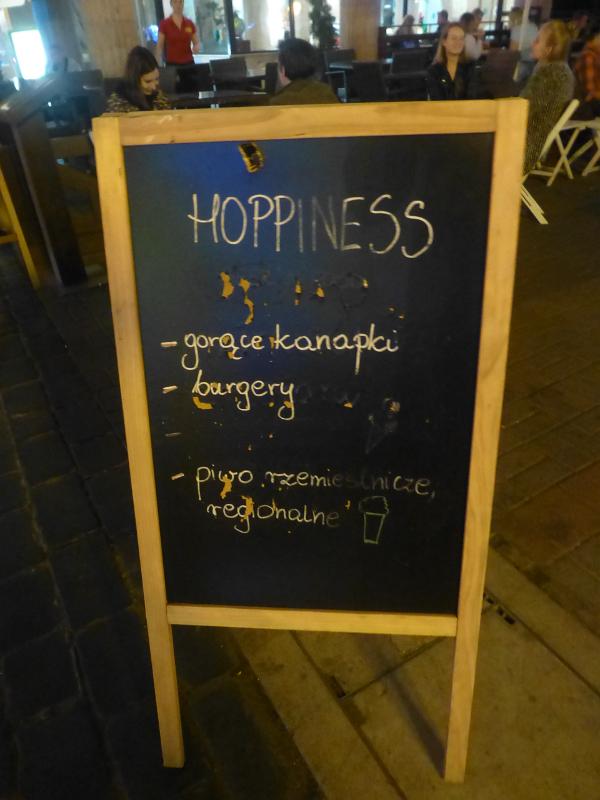 HOPPINESS
- gorące kanapki
- burgery
-
- piwo rzemieślnicze,
regionalne